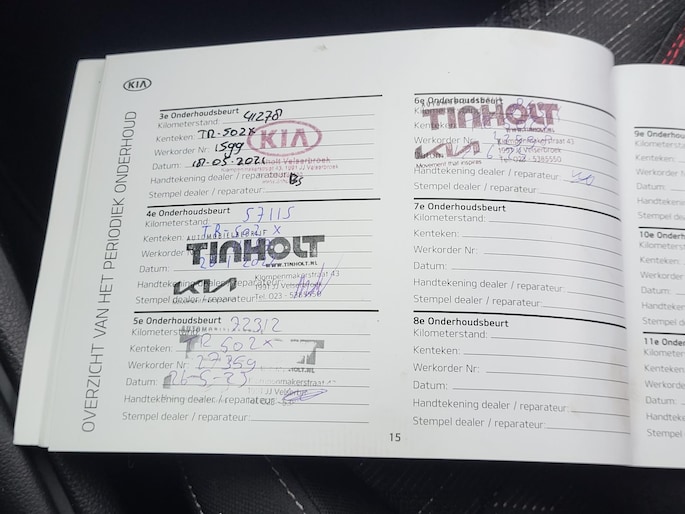 KIA
OVERZICHT VAN HET PERIODIEK ONDERHOUD
3e Onderhoudsbeurt
Kilometerstand: 41278
Kenteken: TR-502X
Werkorder Nr: 1599
KIA
Datum: 18-05-2021
Velserbroek
Handtekening dealer / reparateur:
Stempel dealer / reparateur:
4e Onderhoudsbeurt
Kilometerstand: 57115
Kenteken: TR-502 X
AUTOMOBIELBEDRIJF
Werkorder Nr
TINHOLT
WWW.TINHOLT.NL
Datum:
Klompenmakerstraat 43
Handtekening dealer / reparateur:
KIA
1991 JJ Velserbroek
Stempel dealer / reparateur:
Tel. 023 - 5385550
5e Onderhoudsbeurt
Kilometerstand: 72312
Kenteken: TR 502X
Werkorder Nr: 27359
HOLT.NL
Datum: 26-5-23
Handtekening dealer / reparateur:
Stempel dealer / reparateur:
6e Onderhoudsbeurt
Kilometerstand:
TINHOLT
Kenteken:
Werkorder Nr:
KIA
Movement that inspires
Tel. 023 - 5385550
Datum:
Handtekening dealer / reparateur:
Stempel dealer / reparateur:
7e Onderhoudsbeurt
Kilometerstand:
Kenteken:
Werkorder Nr:
Datum:
Handtekening dealer / reparateur:
Stempel dealer / reparateur:
8e Onderhoudsbeurt
Kilometerstand:
Kenteken:
Werkorder Nr:
Datum:
Handtekening dealer / reparateur:
Stempel dealer / reparateur:
15
9e Onderhoud
Kilometersta
Kenteken:
Werkorder
Datum:
Handteken
Stempel d
10e Onderh
Kilometers
Kenteken
Werkorde
Datum:
Handteke
Stempel
11e Onde
Kilomete
Kenteke
Werkor
Datum:
Handt
Stemp